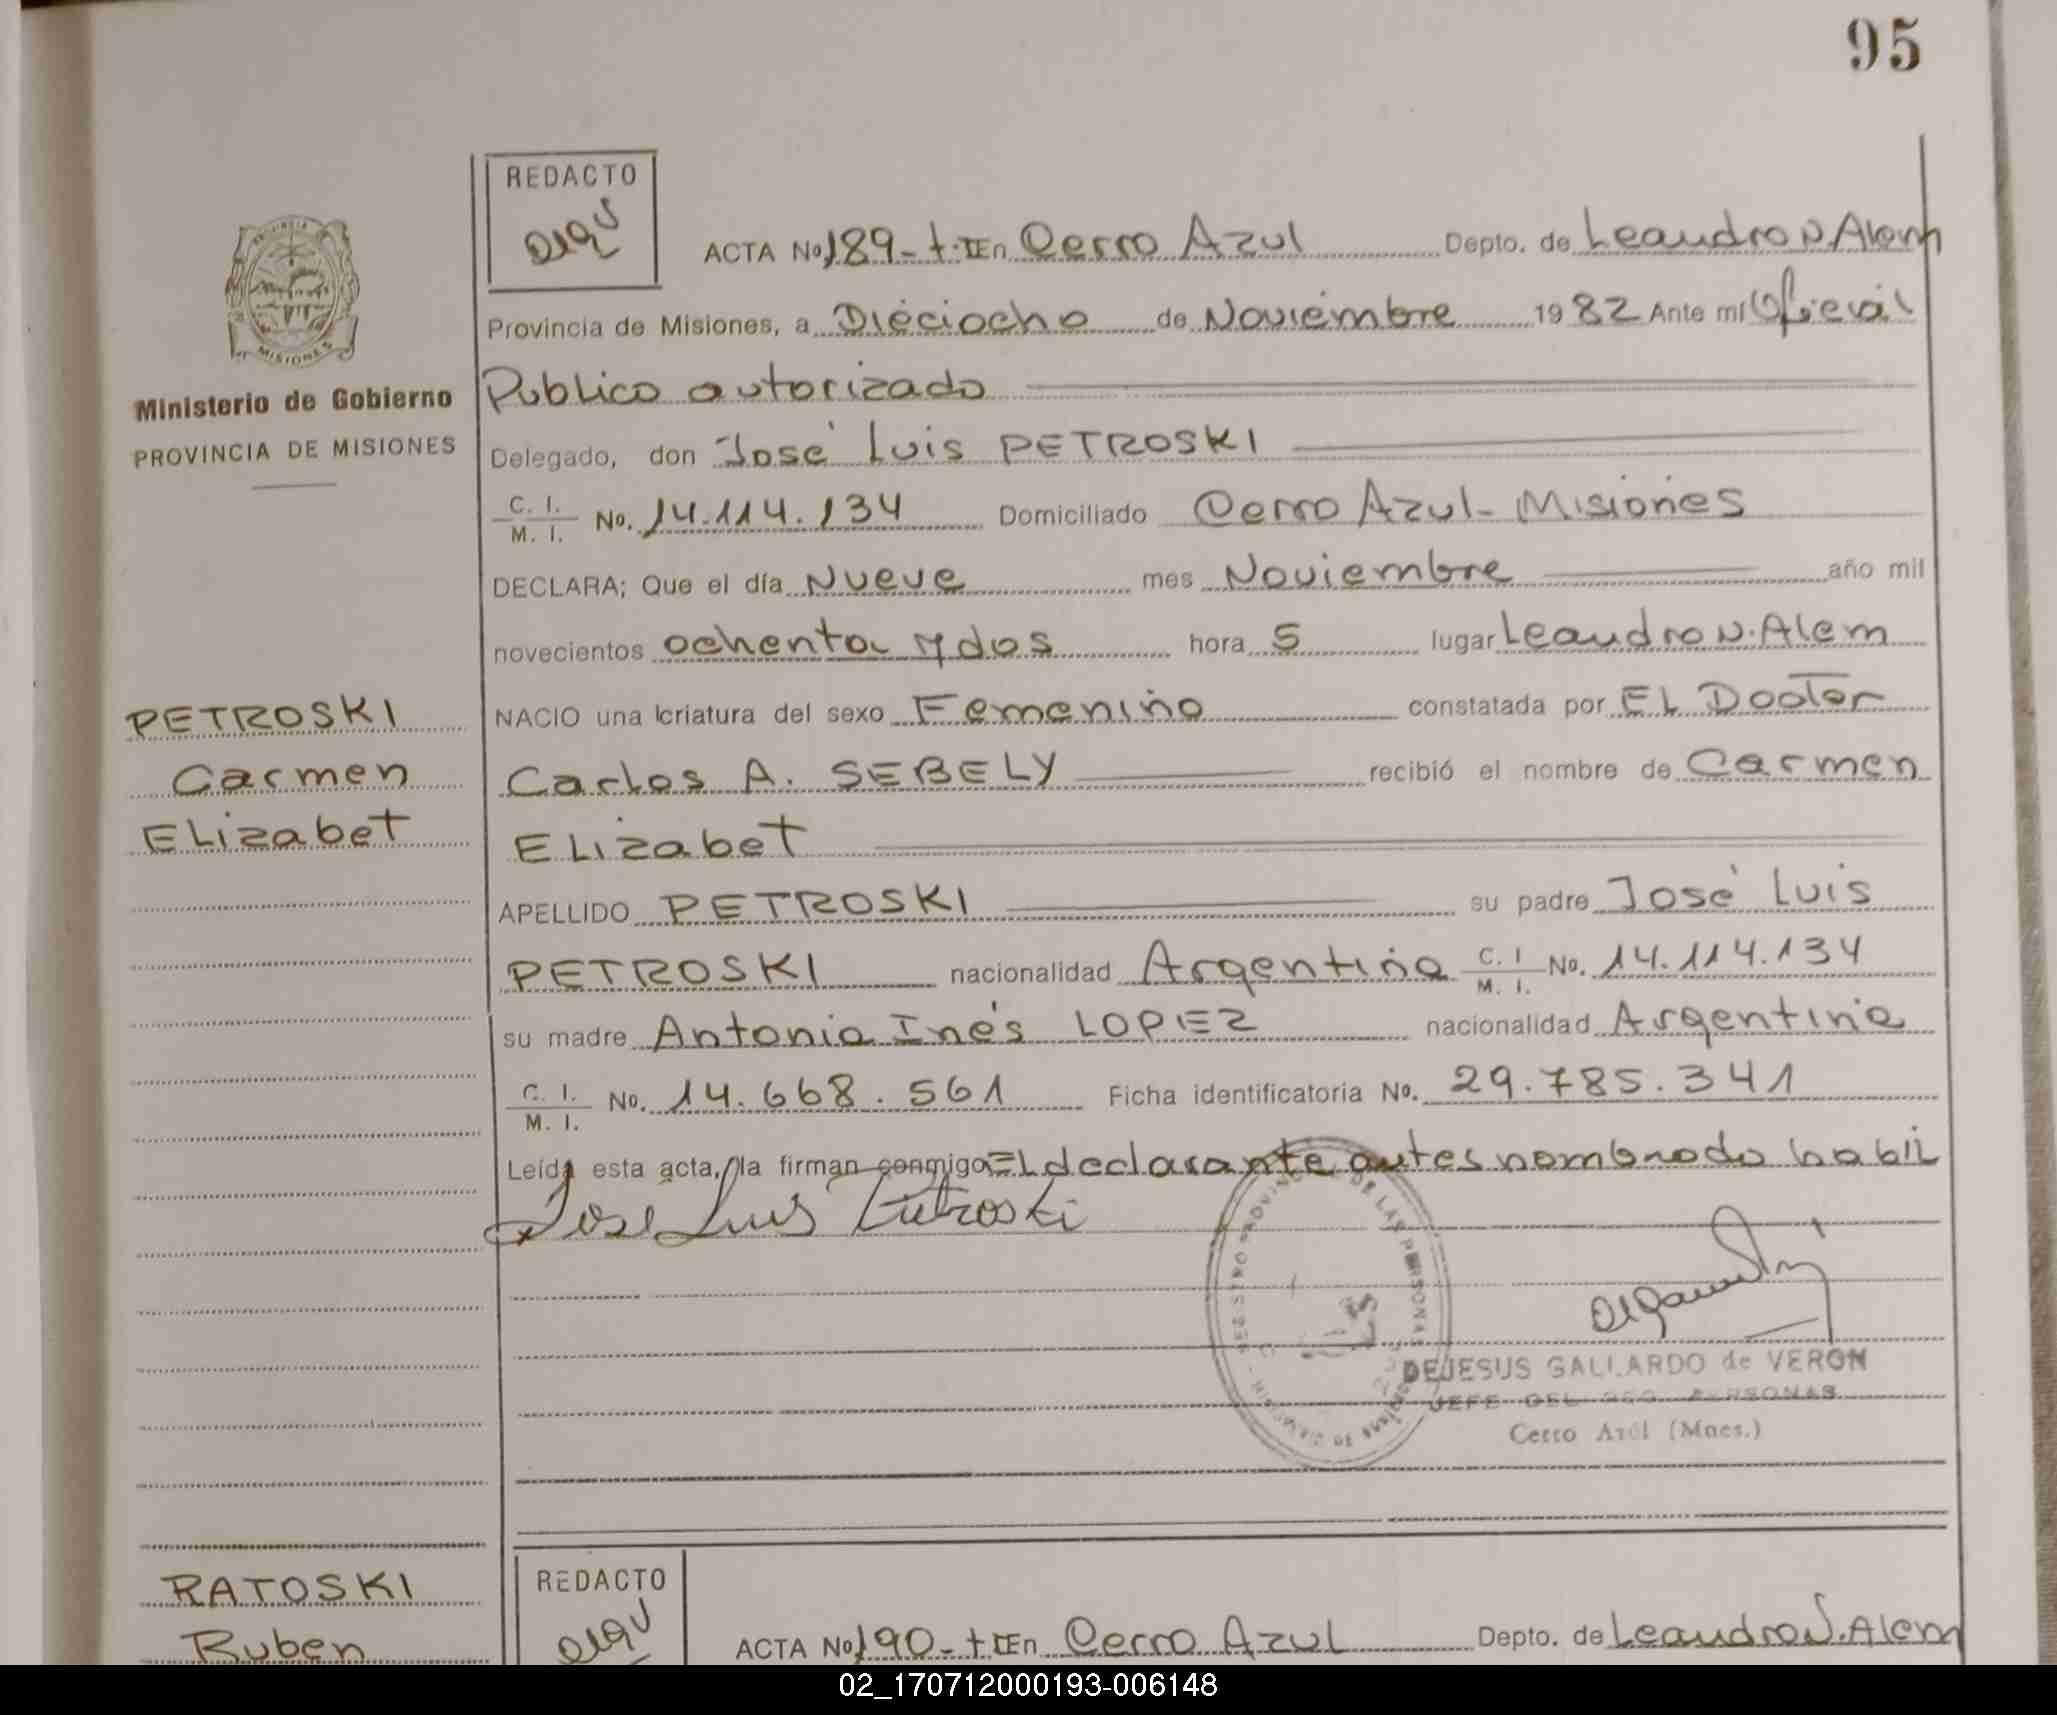 95
REDACTO
ACTA No 189-t.IEn Cerro Azul Depto. de Leandro N Alem
Provincia de Misiones, a Dieciocho de Noviembre 1982 Ante mi Oficial
Publico autorizado
MISIONES
Ministerio de Gobierno
PROVINCIA DE MISIONES
Delegado, don José Luis PETROSKI
C. I.
M. I. No. 14.114.134 Domiciliado Cerro Azul-Misiones
DECLARA; Que el día Nueve mes Noviembre año mil
novecientos ochenta y dos hora 5 lugar Leandro N.Alem
NACIO una criatura del sexo Femenino constatada por EL Doctor
Carlos A. SEBELY recibió el nombre de Carmen
Elizabet
PETROSKI
Carmen
Elizabet
APELLIDO PETROSKI su padre José Luis
PETROSKI nacionalidad Argentina C. I
M. I. No. 14.114.134
su madre Antonia Inés LOPEZ nacionalidad Argentina
C. I.
M. I. No. 14.668.561 Ficha identificatoria No. 29.785.341
Leída esta acta, la firman conmigo EL declarante antes nombrado habil
Jose Luis Petroski
DEJESUS GALLARDO de VERON
JEFE DEL REG. PERSONAS
Cerro Azul (Mnes.)
RATOSKI
Ruben
REDACTO
ACTA No 190-t IEn Cerro Azul Depto. de Leandro N.Alem
02_170712000193-006148